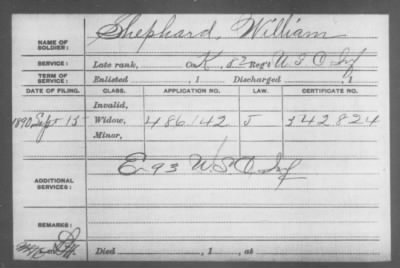 NAME OF SOLDIER: Shephard, William
SERVICE: Late rank, Co. K, 82 Reg't U S C Inf
TERM OF SERVICE: Enlisted , 1 Discharged , 1
DATE OF FILING. CLASS. APPLICATION NO. LAW. CERTIFICATE NO.
Invalid,
1890, Sept 15 Widow, 486142 J 342824
Minor,
ADDITIONAL SERVICES: E 93 U.S.C. Inf
REMARKS:
Died , 1 , at